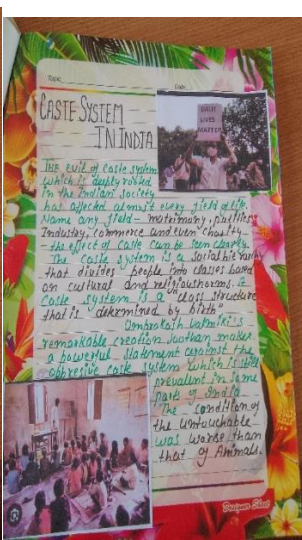 Topic
Date
CASTE SYSTEM
IN INDIA
DALIT
LIVES
MATTER
THE evil of caste system
which is deeply rooted
in the Indian society
has affected almost every field of life.
Name any field - matrimony, politics,
Industry, commerce and even charity
- the effect of caste can be seen clearly.
The caste system is a social hierarchy
that divides people into classes based
on cultural and religious norms.
Caste system is a "class structure
that is determined by birth"
Omprakash Valmiki's
remarkable creation Joothan makes
a powerful statement against the
oppresive caste system which is still
prevalent in some
parts of India
The condition of
the untouchable
was worse than
that of Animals.
Designer Sheet